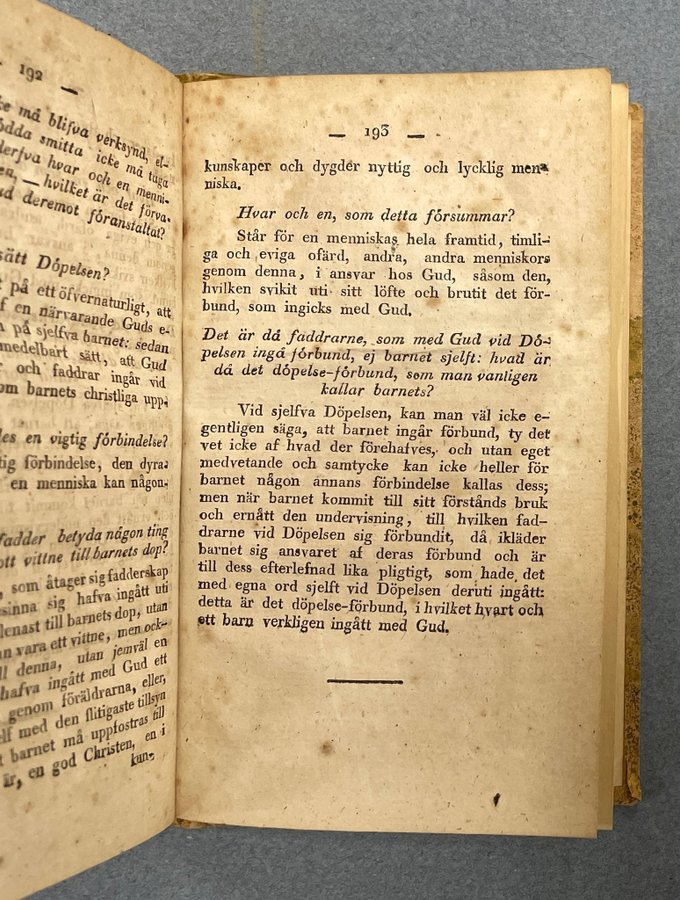 192 —
ke må blifva verksynd, el-
ödda smitta icke må tuga
derfva hvar och en menni-
— hvilket är det förva-
deremot föranstaltat?
sätt Döpelsen?
på ett öfvernaturligt, att
en närvarande Guds e-
på sjelfva barnet: sedan
medelbart sätt, att Gud
och faddrar ingår vid
om barnets christliga upp-
en vigtig förbindelse?
förbindelse, den dyra-
en menniska kan någon-
fadder betyda någon ting
vittne till barnets dop?
som åtager sig fadderskap
sinna sig hafva ingått uti
lenast till barnets dop, utan
vara ett vittne, men ock-
denna, utan jemväl en
hafva ingått med Gud ett
genom föräldrarna, eller,
med den flitigaste tillsyn
barnet må uppfostras till
är, en god Christen, en i
kun-
— 193 —
kunskaper och dygder nyttig och lycklig men-
niska.
Hvar och en, som detta försummar?
Står för en menniskas hela framtid, timli-
ga och eviga ofärd, andra, andra menniskors
genom denna, i ansvar hos Gud, såsom den,
hvilken svikit uti sitt löfte och brutit det för-
bund, som ingicks med Gud.
Det är då faddrarne, som med Gud vid Dö-
pelsen ingå förbund, ej barnet sjelft: hvad är
då det döpelse-förbund, som man vanligen
kallar barnets?
Vid sjelfva Döpelsen, kan man väl icke e-
gentligen säga, att barnet ingår förbund, ty det
vet icke af hvad der förehafves, och utan eget
medvetande och samtycke kan icke heller för
barnet någon annans förbindelse kallas dess;
men när barnet kommit till sitt förstånds bruk
och ernått den undervisning, till hvilken fad-
drarne vid Döpelsen sig förbundit, då ikläder
barnet sig ansvaret af deras förbund och är
till dess efterlefnad lika pligtigt, som hade det
med egna ord sjelft vid Döpelsen deruti ingått:
detta är det döpelse-förbund, i hvilket hvart och
ett barn verkligen ingått med Gud.